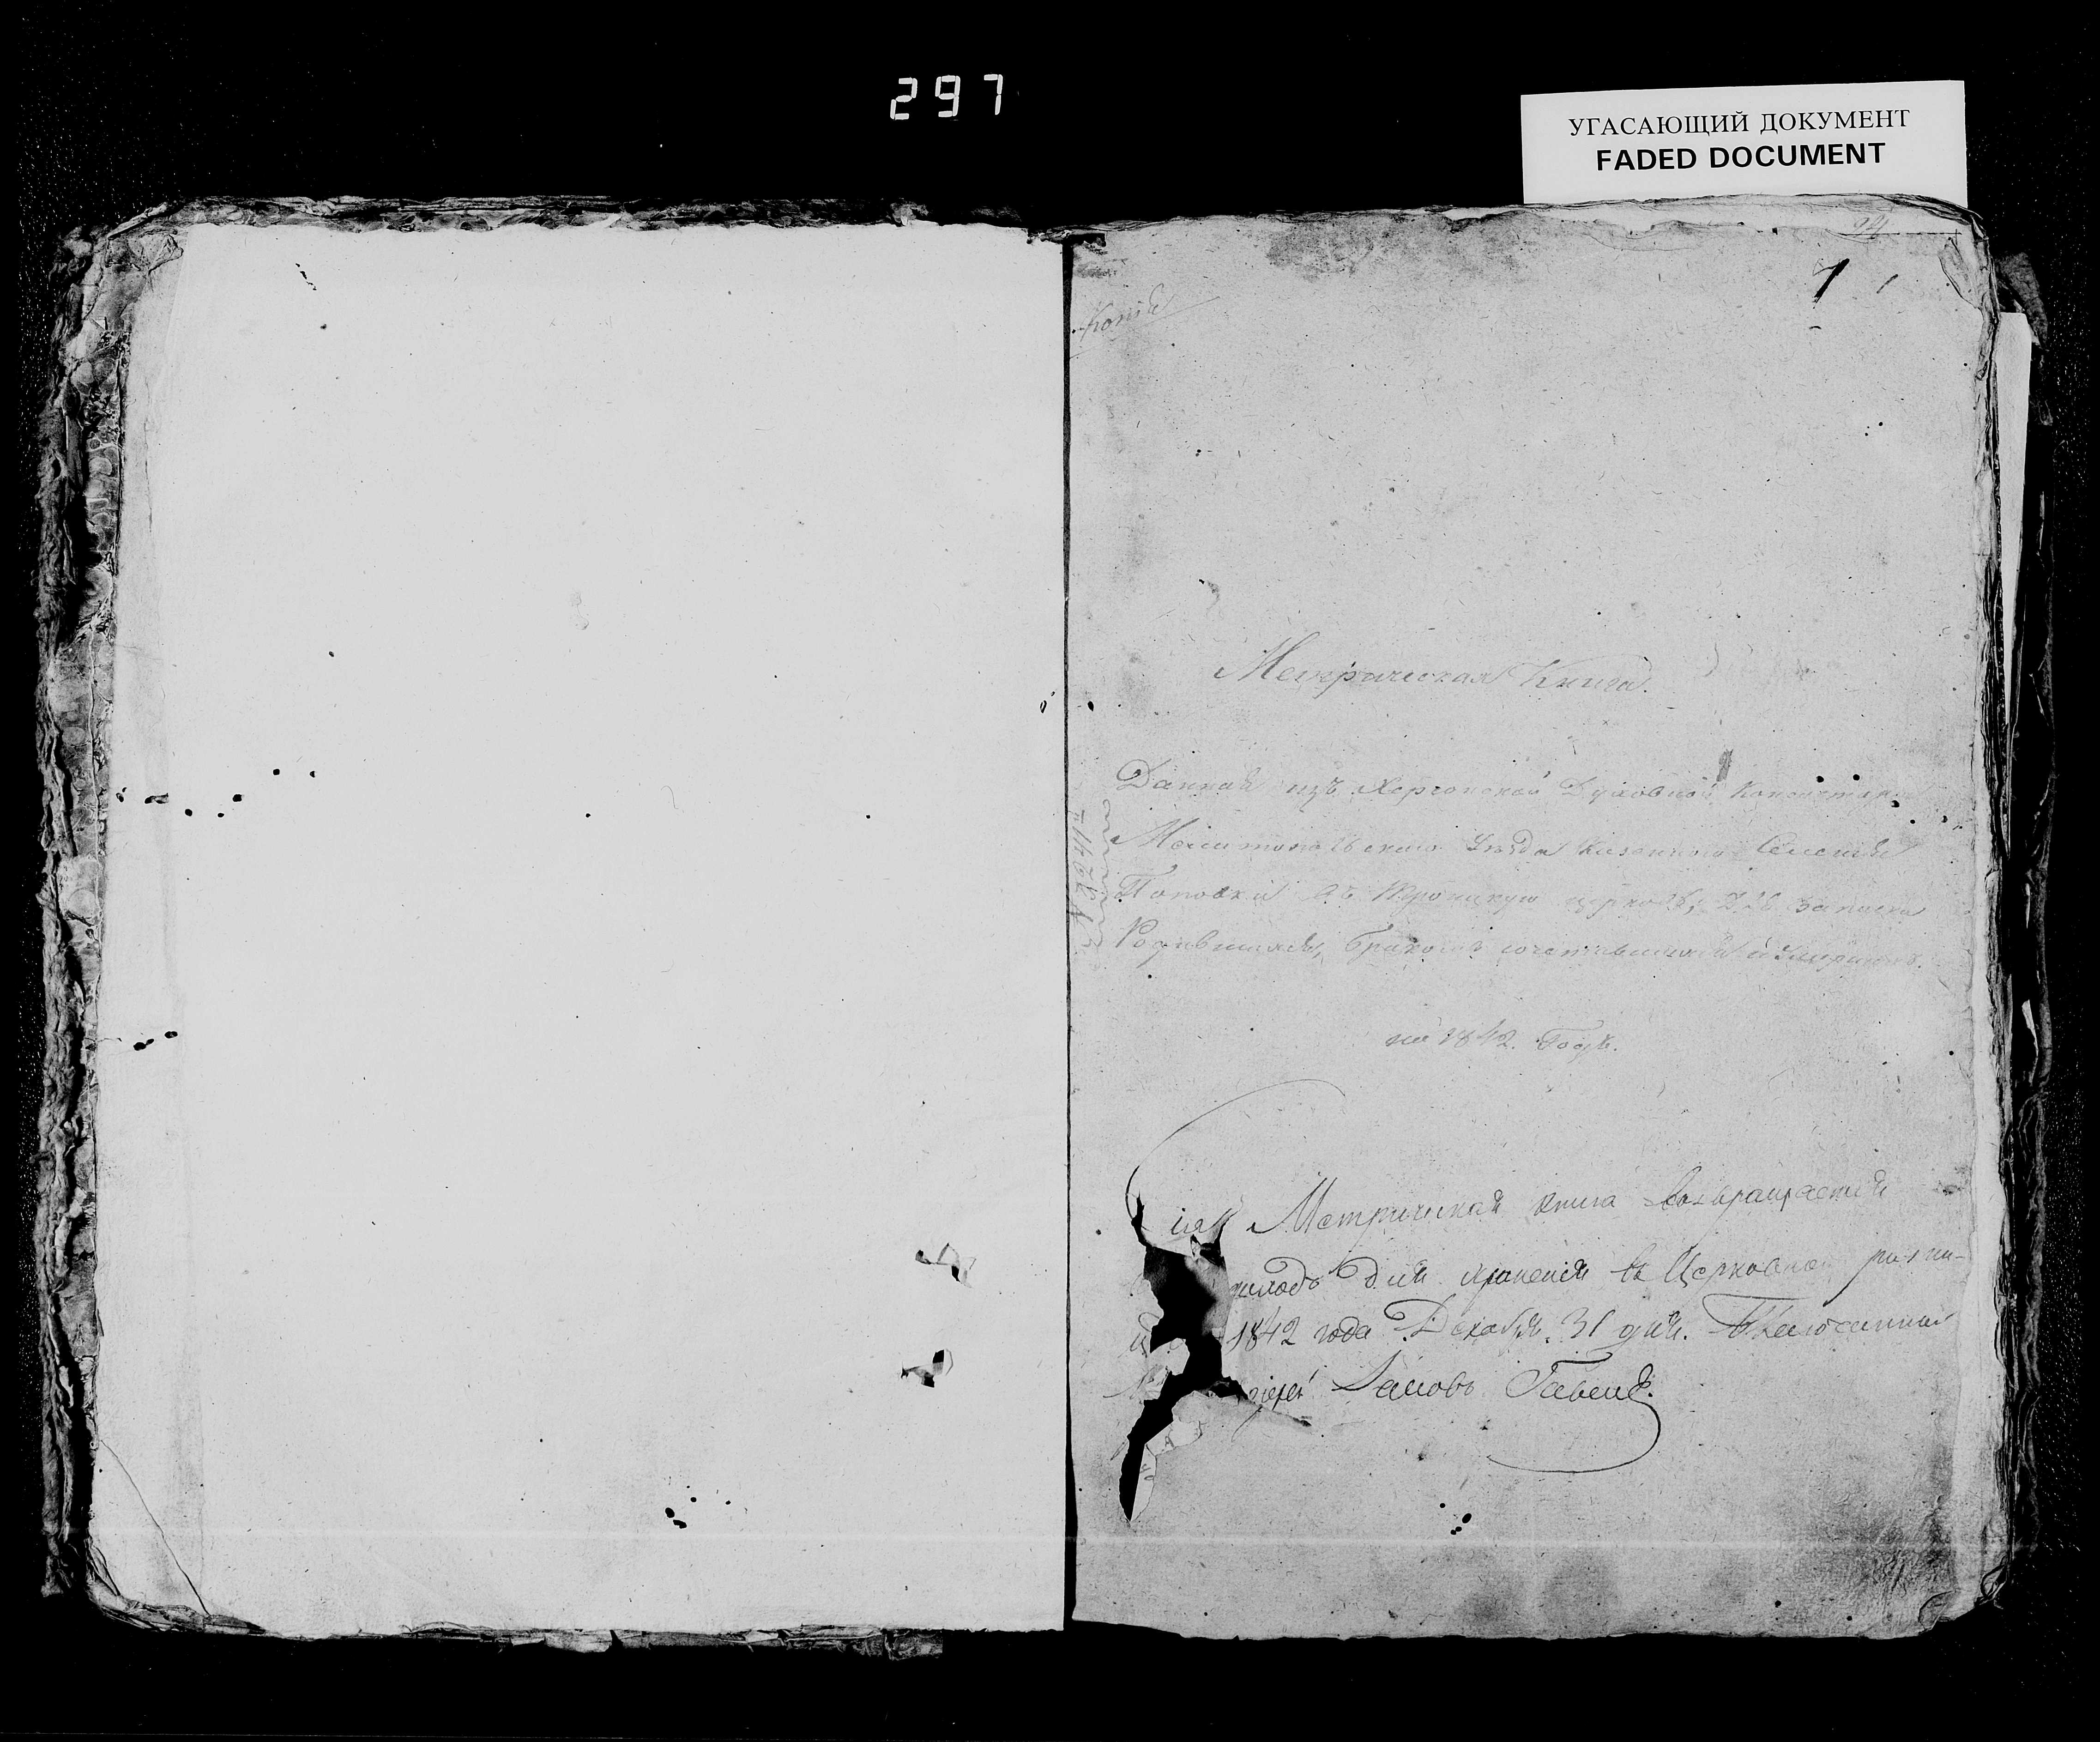 297
УГАСАЮЩИЙ ДОКУМЕНТ
FADED DOCUMENT
1
Копія
Метрическая Книга.
Данная изъ Херсонской Духовной Консисторіи
Мелитопольскаго уѣзда Казеннаго Селенія
Поповки въ Троицкую церковь, для записки
Родившихся, бракомъ сочетавшихся и умершихъ.
на 1842. Годъ.
сія Метрическая книга возвращается
для храненія въ Церковной ризни-
1842 года Декабря 31 дня. Благочинный
іерей Іаковъ